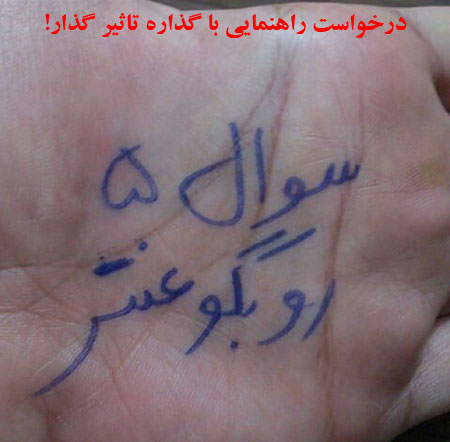 درخواست راهنمایی با گذاره تاثیر گذار!
سوال ۵
رو بگو عنتر